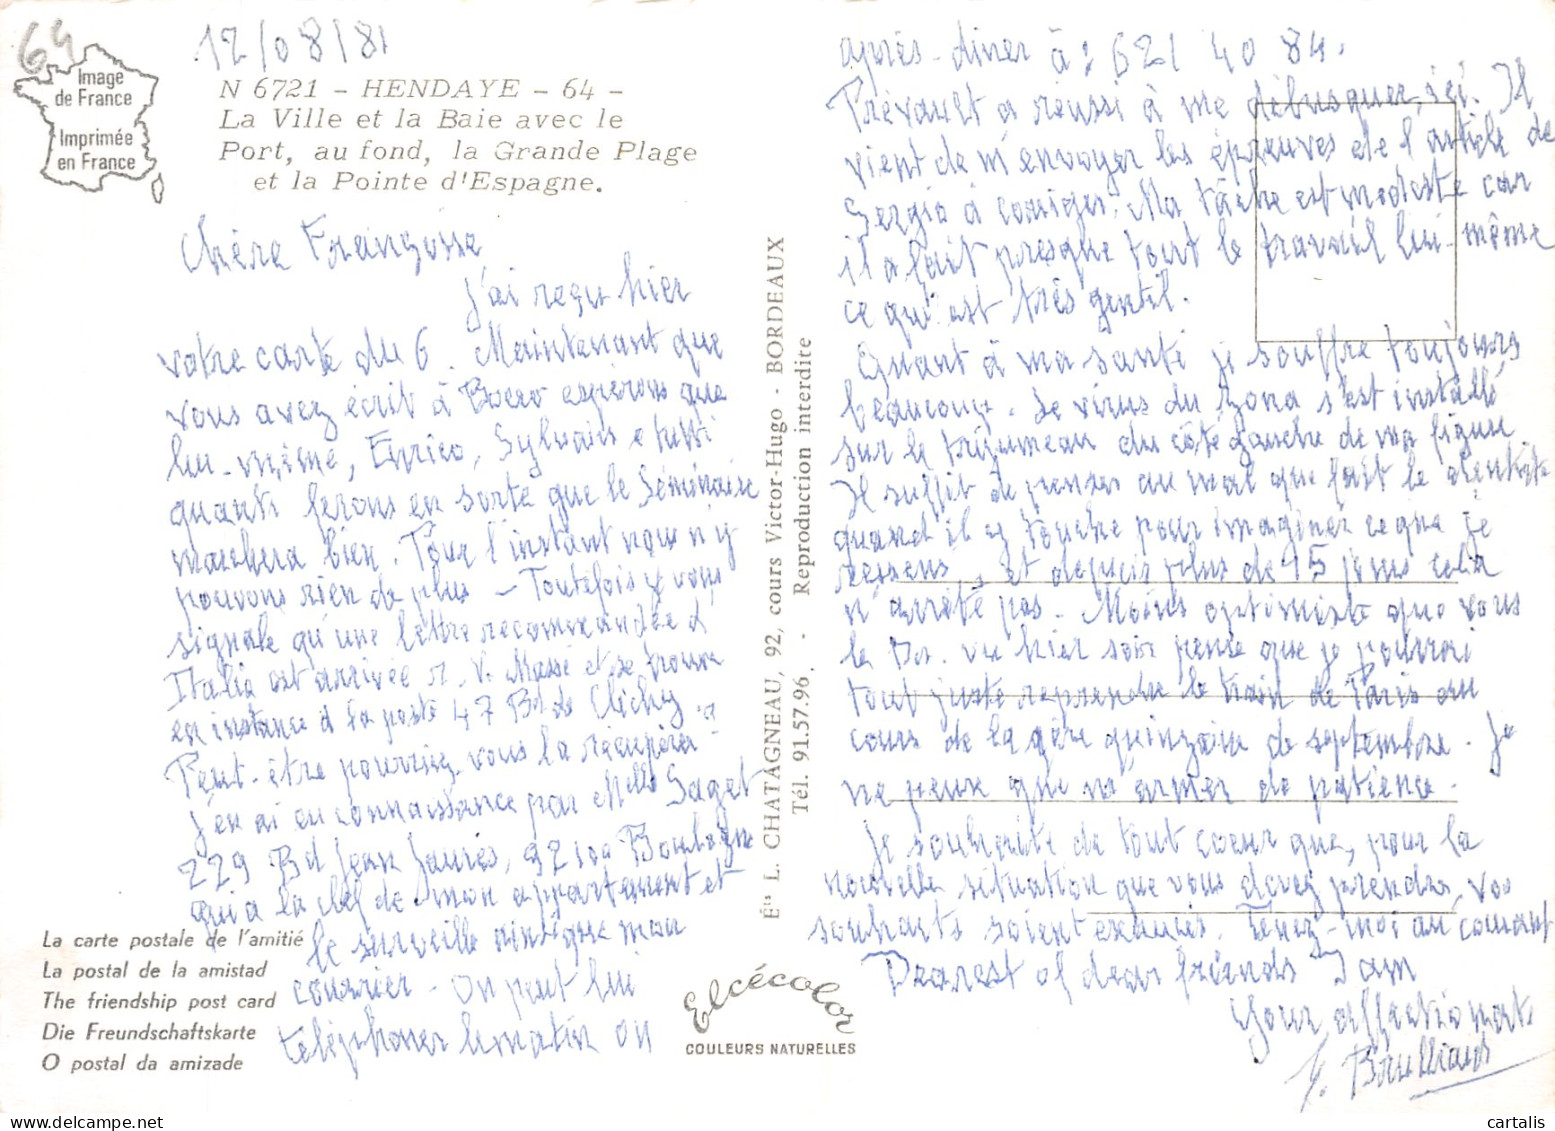 64
Image
de France
Imprimée
en France
12/08/81
N 6721 - HENDAYE - 64 -
La Ville et la Baie avec le
Port, au fond, la Grande Plage
et la Pointe d'Espagne.
Chère Françoise
J'ai reçu hier
votre carte du 6. Maintenant que
vous avez écrit à Bovero espérons que
lui-même, Enrico, Sylvain e tutti
quanti ferons en sorte que le Séminaire
marchera bien. Pour l'instant nous n'y
pouvons rien de plus - Toutefois je vous
signale qu'une lettre recommandée d'
Italie est arrivée r. V. Massé et se trouve
en instance à la poste 47 Bd de Clichy.
Peut-être pourriez-vous la récupérer
j'en ai eu connaissance par Melle Saget
229 Bd Jean Jaurès, 92100 Boulogne
qui a la clef de mon appartement et
le surveille ainsi que mon
courrier - On peut lui
téléphoner le matin ou
La carte postale de l'amitié
La postal de la amistad
The friendship post card
Die Freundschaftskarte
O postal da amizade
Éts L. CHATAGNEAU, 92, cours Victor-Hugo - BORDEAUX
Tél. 91.57.96. - Reproduction interdite
Elcécolor
COULEURS NATURELLES
après-diner à : 621 40 84.
Prévault a réussi à me débusquer ici. Il
vient de m'envoyer les épreuves de l'article de
Sergio à corriger. Ma tâche est modeste car
il a fait presque tout le travail lui-même
ce qui est très gentil.
Quant à ma santé je souffre toujours
beaucoup. Le virus du zona s'est installé
sur le trijumeau du côté gauche de ma figure
Il suffit de penser au mal que fait le dentiste
quand il y touche pour imaginer ce que je
ressens, et depuis plus de 15 jours cela
n'arrête pas. Moins optimiste que vous
le Dr. vu hier soir pense que je pourrai
tout juste reprendre le train de Paris au
cours de la 1ère quinzaine de septembre. Je
ne peux que m'armer de patience.
Je souhaite de tout coeur que, pour la
nouvelle situation que vous devez prendre, vos
souhaits soient exaucés. Tenez-moi au courant
Dearest of dear friends I am
Your affectionate